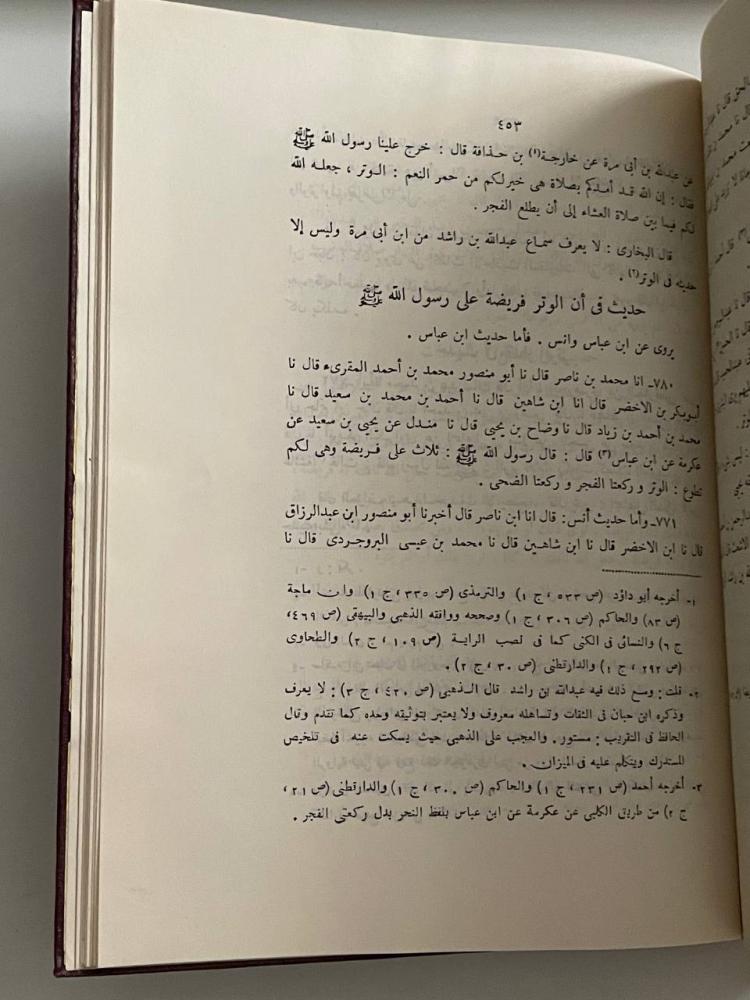 ٤٥٣
عن عبدالله بن أبى مرة عن خارجة(١) بن حذافة قال : خرج علينا رسول الله ﷺ
فقال : إن الله قد أمدكم بصلاة هى خير لكم من حمر النعم : الوتر ، جعله الله
لكم فيما بين صلاة العشاء إلى أن يطلع الفجر .
قال البخارى : لا يعرف سماع عبدالله بن راشد من ابن أبى مرة وليس إلا
حديثه فى الوتر(٢) .
حديث فى أن الوتر فريضة على رسول الله ﷺ
يروى عن ابن عباس وانس . فأما حديث ابن عباس .
٧٨٠ـ انا محمد بن ناصر قال نا أبو منصور محمد بن أحمد المقرىء قال نا
أبوبكر بن الاخضر قال انا ابن شاهين قال نا أحمد بن محمد بن سعيد قال نا
محمد بن أحمد بن زياد قال نا وضاح بن يحيى قال نا مندل عن يحيى بن سعيد عن
عكرمة عن ابن عباس(٣) قال : قال رسول الله ﷺ : ثلاث على فريضة وهى لكم
تطوع : الوتر و ركعتا الفجر و ركعتا الضحى .
٧٧١ـ وأما حديث أنس: قال انا ابن ناصر قال أخبرنا أبو منصور ابن عبدالرزاق
قال نا ابن الاخضر قال نا ابن شاهين قال نا محمد بن عيسى البروجردى قال نا
١- أخرجه أبو داؤد (ص ٥٣٣ ، ج ١) والترمذى (ص ٣٣٥ ، ج ١) وابن ماجة
(ص ٨٣) والحاكم (ص ٣٠٦ ، ج ١) وصححه ووافقه الذهبى والبيهقى (ص ٤٦٩،
ج ٦) والنسائى فى الكنى كما فى نصب الراية (ص ١٠٩ ، ج ٢) والطحاوى
(ص ٢٩٢ ، ج ١) والدارتطنى (ص ٣٠ ، ج ٢) .
٢- قلت : ومع ذلك فيه عبدالله بن راشد قال الذهبى (ص ٤٢٠ ، ج ٣) : لا يعرف
وذكره ابن حبان فى الثقات وتساهله معروف ولا يعتبر بتوثيقه وحده كما تتدم وقال
الحافظ فى التقريب : مستور . والعجب على الذهبى حيث يسكت عنه فى تلخيص
المستدرك ويتكلم عليه فى الميزان .
٣- أخرجه أحمد (ص ٢٣١ ، ج ١) والحاكم (ص ٣٠٠ ، ج ١) والدارتطنى (ص ٢١ ،
ج ٢) من طريق الكلبى عن عكرمة عن ابن عباس بلفظ النحر بدل ركعتى الفجر .